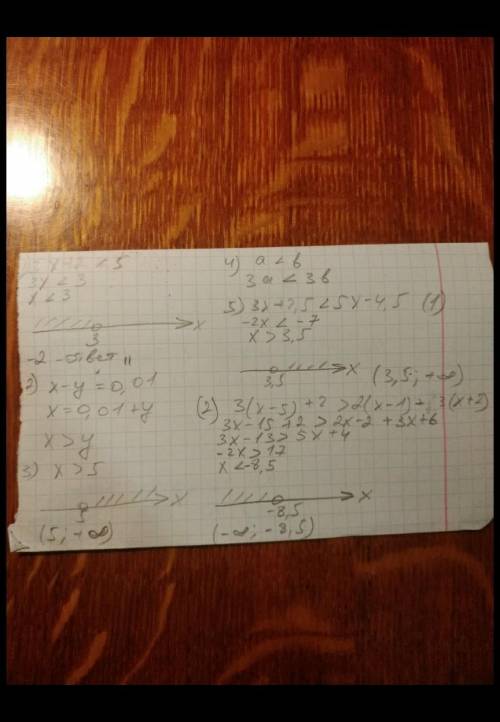 < 5
3x < 3
x < 3
x
3
-2 - ответ
2) x - y = 0,01
x = 0,01 + y
x > y
3) x > 5
x
5
(5; +∞)
4) a < b
3a < 3b
5) 3x + 2,5 < 5x - 4,5 (1)
-2x < -7
x > 3,5
x
3,5
(3,5; +∞)
(2) 3(x-5) + 2 > 2(x-1) + 3(x+2)
3x - 15 + 2 > 2x - 2 + 3x + 6
3x - 13 > 5x + 4
-2x > 17
x < -8,5
x
-8,5
(-∞; -8,5)